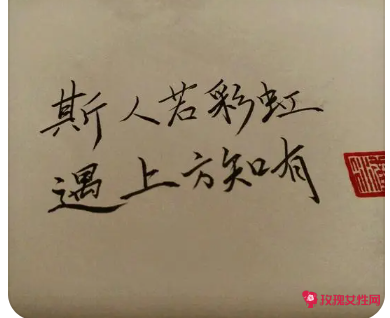 斯人若彩虹
遇上方知有
玫瑰女性网